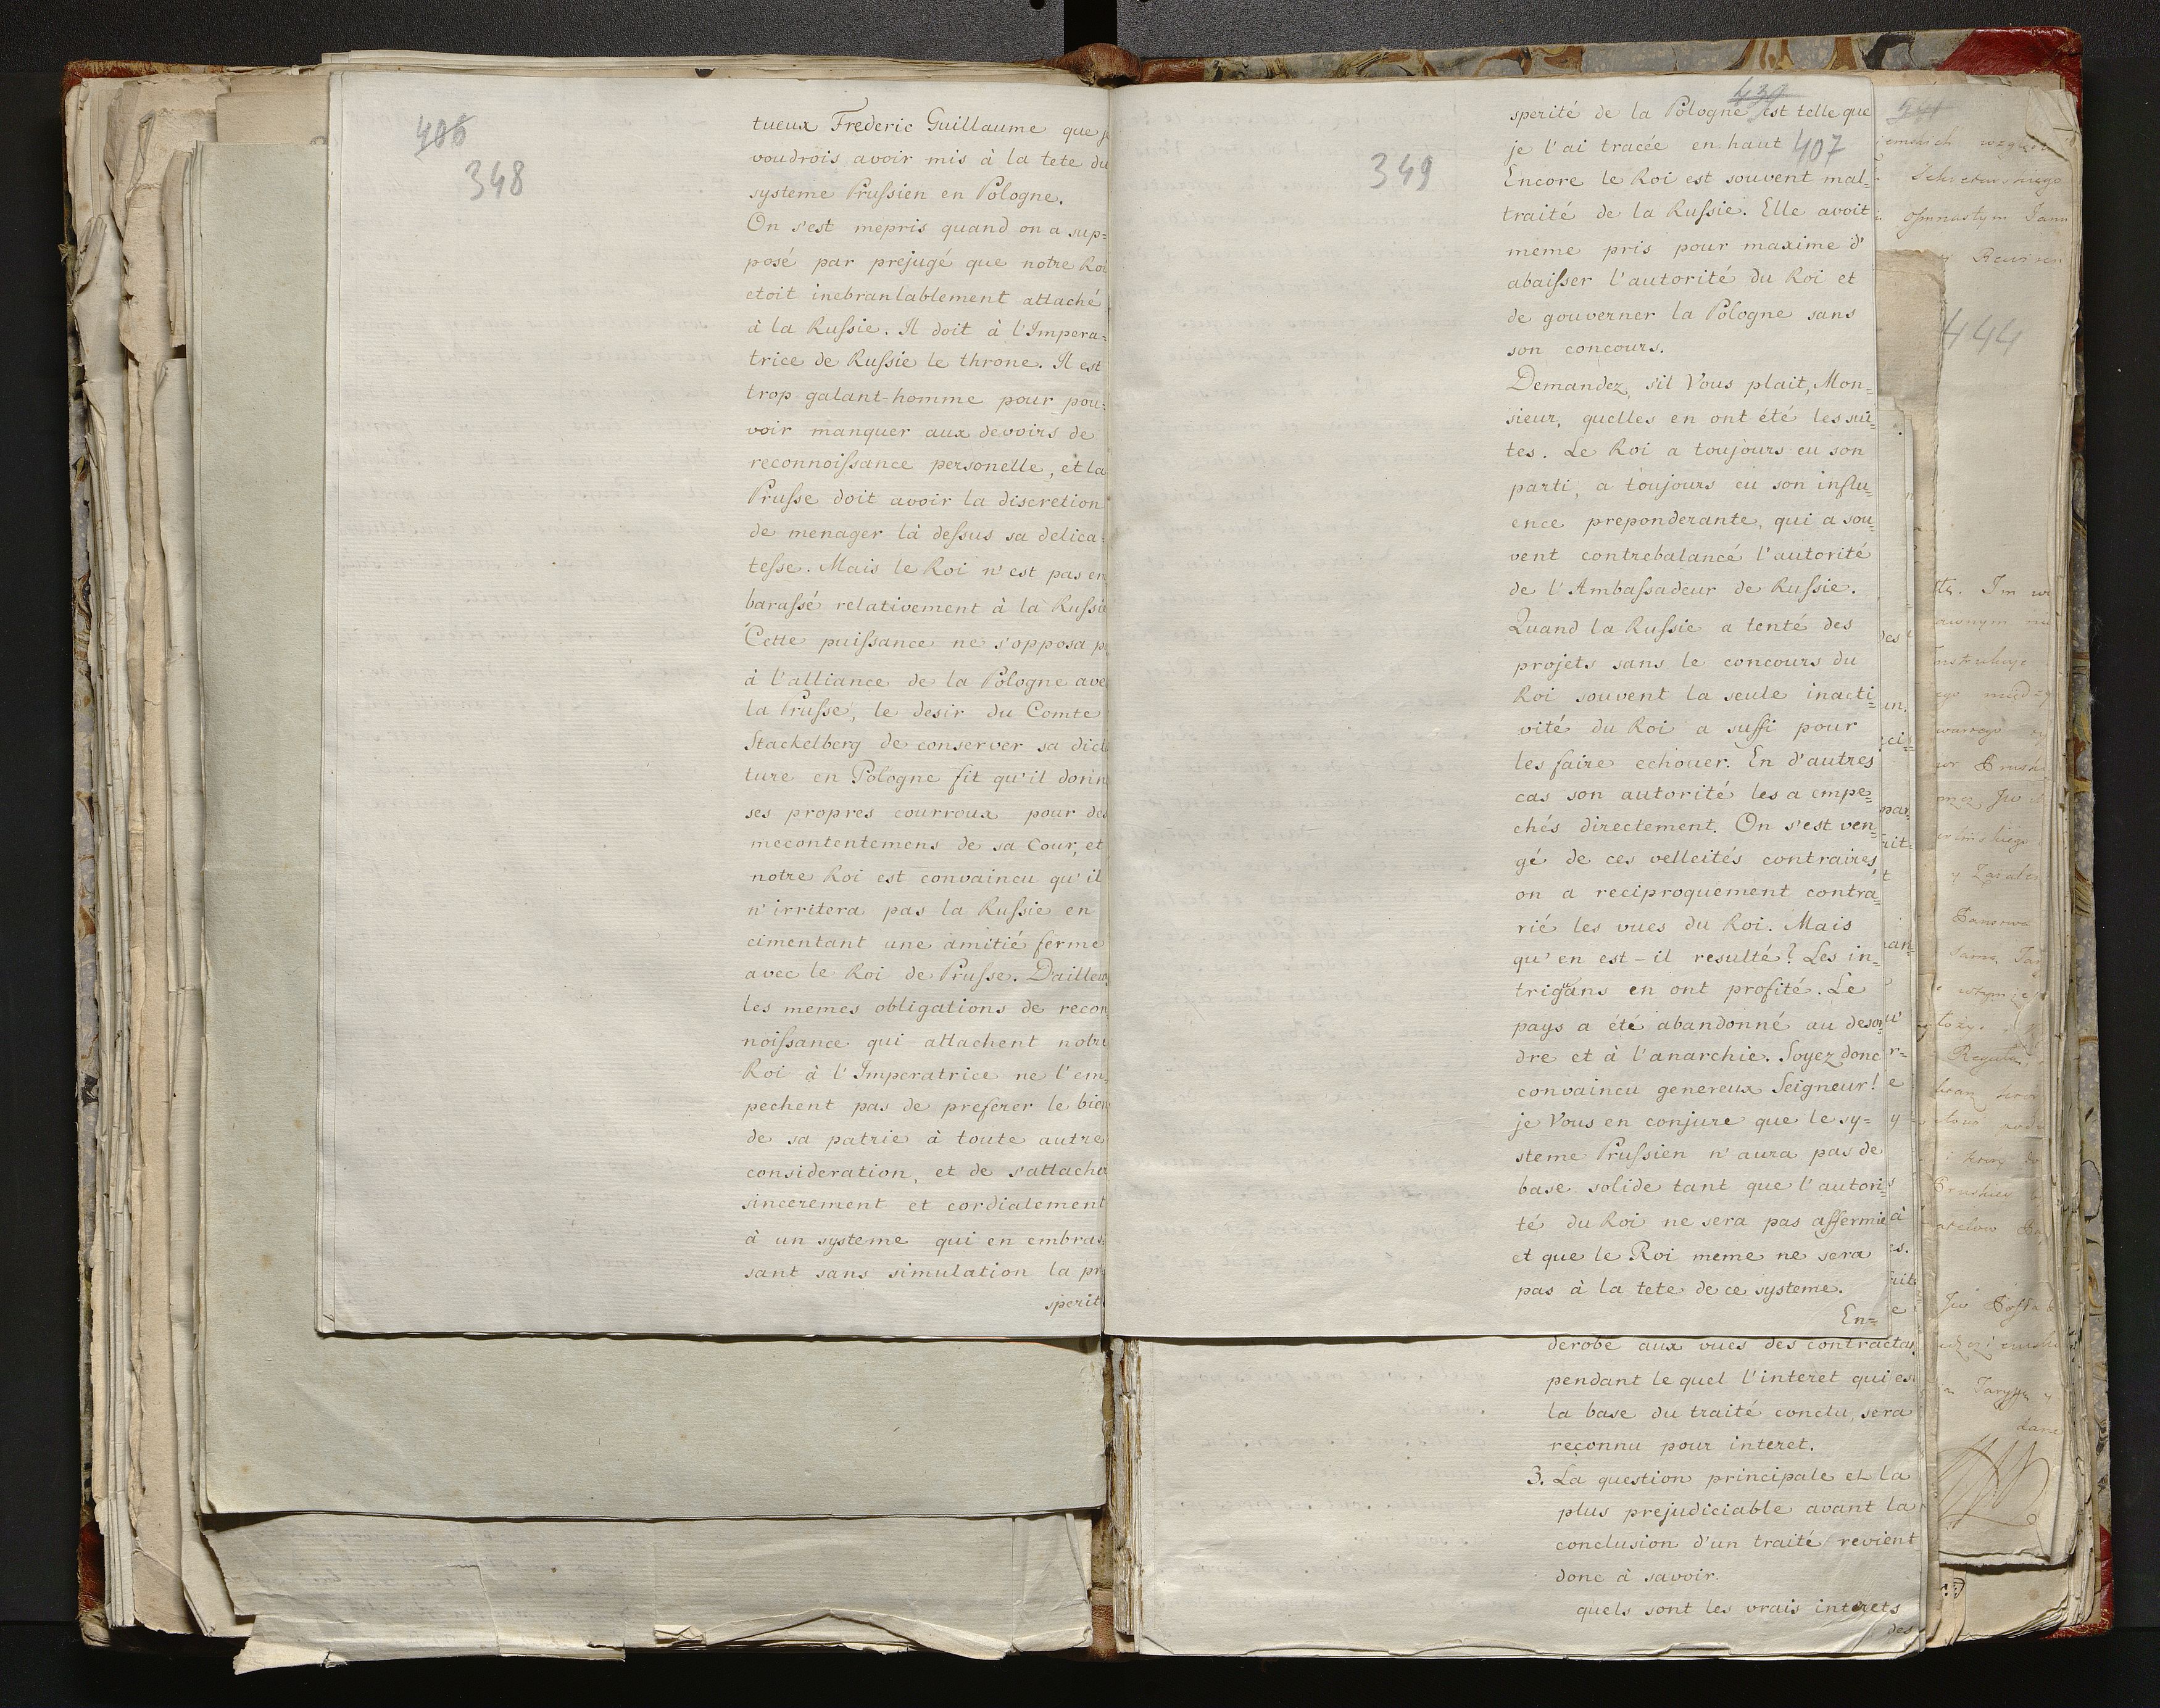 406
348
tueux Frederic Guillaume que
voudrois avoir mis à la tete du
systeme Prussien en Pologne.
On s'est mepris quand on a sup=
posé par prejugé que notre Roi
etoit inebranlablement attaché
à la Russie. Il doit à l'Impera=
trice de Russie le throne. Il est
trop galant-homme pour pou=
voir manquer aux devoirs de
reconnoissance personelle, et la
Prusse doit avoir la discretion
de menager là dessus sa delica=
tesse. Mais le Roi n'est pas em
barassé relativement à la Russie
Cette puissance ne s'opposa p
à l'alliance de la Pologne ave
la Prusse, le desir du Comte
Stackelberg de conserver sa dict
ture en Pologne fit qu'il donn
ses propres courroux pour des
mecontentemens de sa Cour, et
notre Roi est convaincu qu'il
n'irritera pas la Russie en
cimentant une amitié ferme
avec le Roi de Prusse. D'ailleurs
les memes obligations de recon
noissance qui attachent notre
Roi à l'Imperatrice ne l'em=
pechent pas de preferer le bien
de sa patrie à toute autre
consideration, et de s'attacher
sincerement et cordialement
à un systeme qui en embras=
sant sans simulation la pr
sperit
439
407
349
sperité de la Pologne est telle que
je l'ai tracée en haut
Encore le Roi est souvent mal=
traité de la Russie. Elle avoit
meme pris pour maxime d'
abaisser l'autorité du Roi et
de gouverner la Pologne sans
son concours.
Demandez, s'il Vous plait, Mon=
sieur, quelles en ont été les sui=
tes. Le Roi a toujours eu son
parti, a toujours eu son influ=
ence preponderante, qui a sou=
vent contrebalancé l'autorité
de l'Ambassadeur de Russie.
Quand la Russie a tenté des
projets sans le concours du
Roi souvent la seule inacti=
vité du Roi a suffi pour
les faire echouer. En d'autres
cas son autorité les a empe=
chés directement. On s'est ven=
gé de ces velleités contraires,
on a reciproquement contra=
rié les vues du Roi. Mais
qu'en est-il resulté? Les in=
trigans en ont profité. Le
pays a été abandonné au desor
dre et à l'anarchie. Soyez donc
convaincu genereux Seigneur!
je Vous en conjure que le sy=
steme Prussien n'aura pas de
base solide tant que l'autori=
té du Roi ne sera pas affermie
et que le Roi meme ne sera
pas à la tete de ce systeme.
En=
derobe aux vues des contractas
pendant le quel l'interet qui es
la base du traité conclu, sera
reconnu pour interet.
3. La question principale et la
plus prejudiciable avant la
conclusion d'un traité revient
donc à savoir.
quels sont les vrais interets
des
444